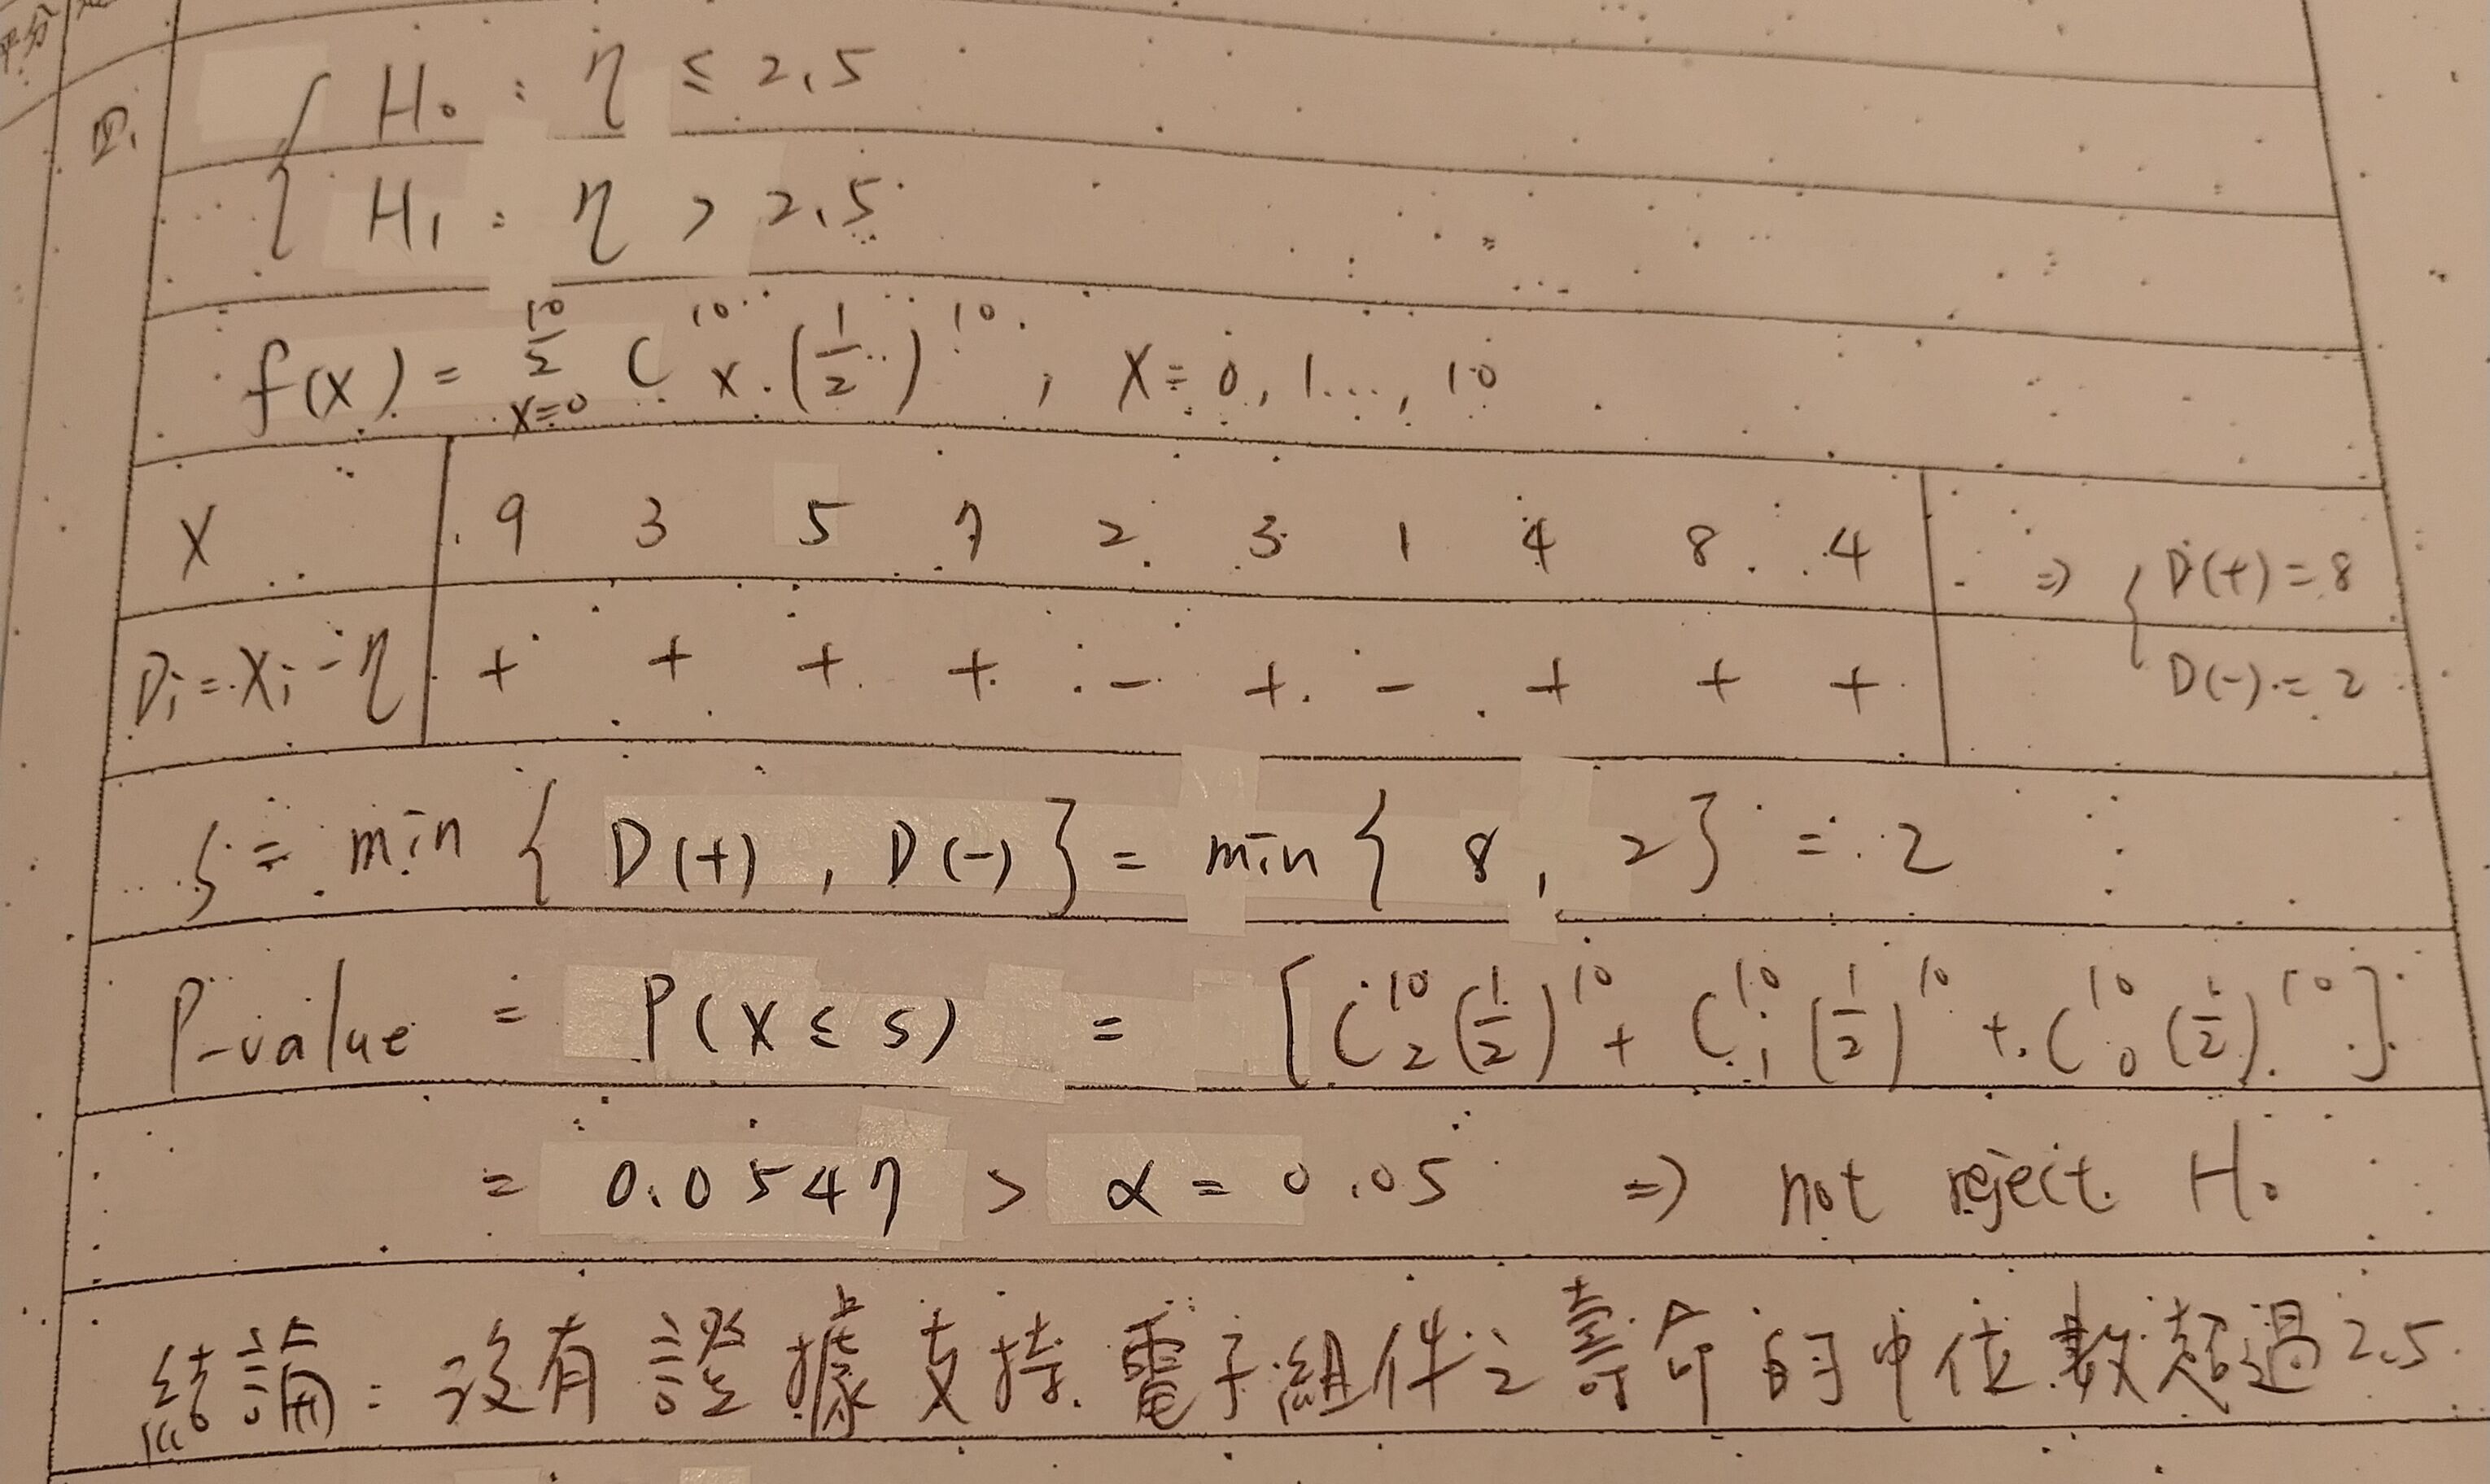 四、
H₀ : η ≤ 2.5
H₁ : η > 2.5
f(x) = Σ_{x=0}^{10} C^{10}_x (1/2)^{10} , x = 0, 1..., 10
X 9 3 5 7 2 3 1 4 8 4 ⇒ { D(+) = 8
Dᵢ = Xᵢ - η + + + + - + - + + + D(-) = 2
S = min { D(+) , D(-) } = min { 8 , 2 } = 2
P-value = P(X ≤ S) = [ C^{10}_2 (1/2)^{10} + C^{10}_1 (1/2)^{10} + C^{10}_0 (1/2)^{10} ]
= 0.0547 > α = 0.05 ⇒ not reject H₀
結論：沒有證據支持電子組件之壽命的中位數超過2.5